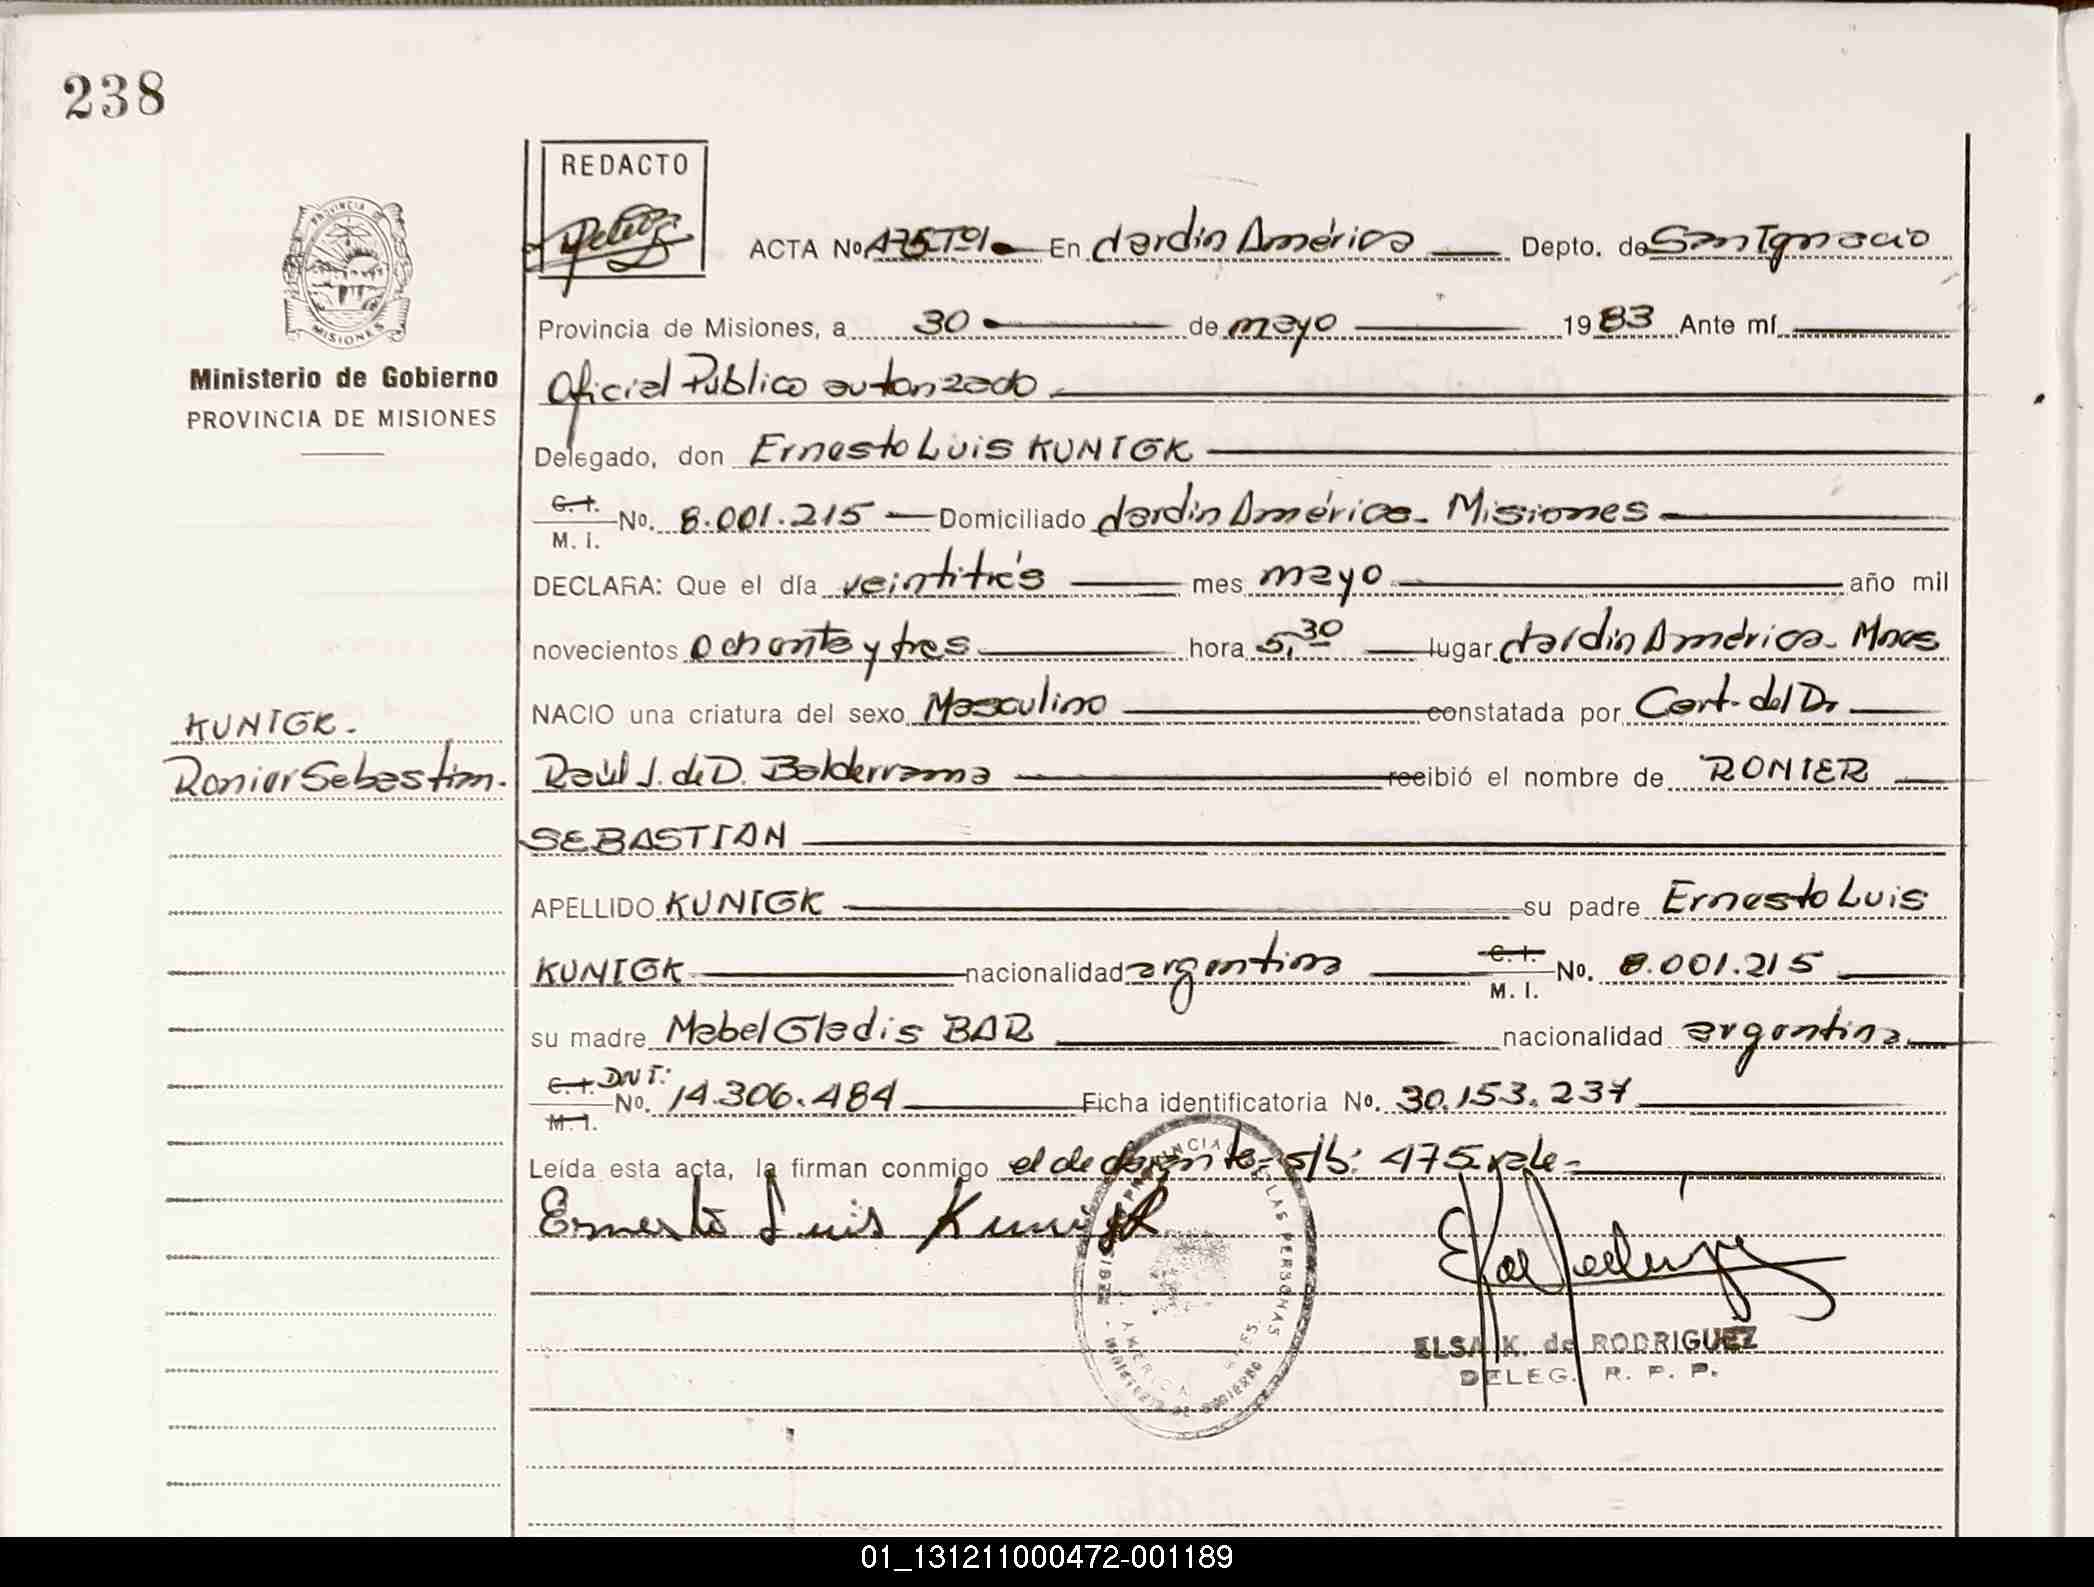 238
REDACTO
PROVINCIA DE
MISIONES
Ministerio de Gobierno
PROVINCIA DE MISIONES
ACTA No 475 Tº 1 En Jardín América Depto. de San Ignacio
Provincia de Misiones, a 30 de mayo 1983 Ante mí
Oficial Público autorizado
Delegado, don Ernesto Luis KUNIGK
C. I.
M. I. No. 8.001.215 Domiciliado Jardín América - Misiones
DECLARA: Que el día veintitrés mes mayo año mil
novecientos ochenta y tres hora 5,30 lugar Jardín América - Mnes
NACIO una criatura del sexo Masculino constatada por Cert. del Dr
KUNIGK.
Ronier Sebastian.
Raúl J. de D. Balderrama recibió el nombre de RONIER
SEBASTIAN
APELLIDO KUNIGK su padre Ernesto Luis
KUNIGK nacionalidad argentina C. I.
M. I. No. 8.001.215
su madre Mabel Gladis BAR nacionalidad argentina
C. I.
M. I. DNI: No. 14.306.484 Ficha identificatoria No. 30.153.237
Leída esta acta, la firman conmigo el declarante - s/b: 475 vale -
Ernesto Luis Kunigk
LAS PERSONAS
AMERICA
ELSA K. de RODRIGUEZ
DELEG. R. P. P.
01_131211000472-001189